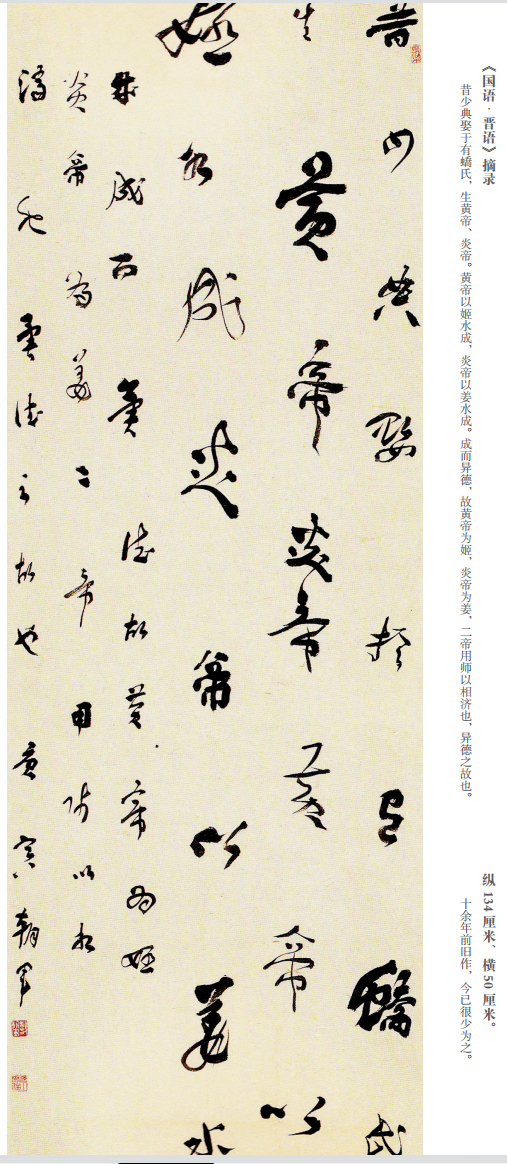 《国语·晋语》摘录
纵 134 厘米、横 50 厘米。
昔少典娶于有蟜氏，生黄帝、炎帝。黄帝以姬水成，炎帝以姜水成。成而异德，故黄帝为姬，炎帝为姜，二帝用师以相济也，异德之故也。
十余年前旧作，今已很少为之。
昔少典娶於有蟜氏
生黄帝炎帝黄帝以
姬水成炎帝以姜水
成成而異德故黄帝为姬
炎帝為姜二帝用师以相
濟也異德之故也庚寅朝軍